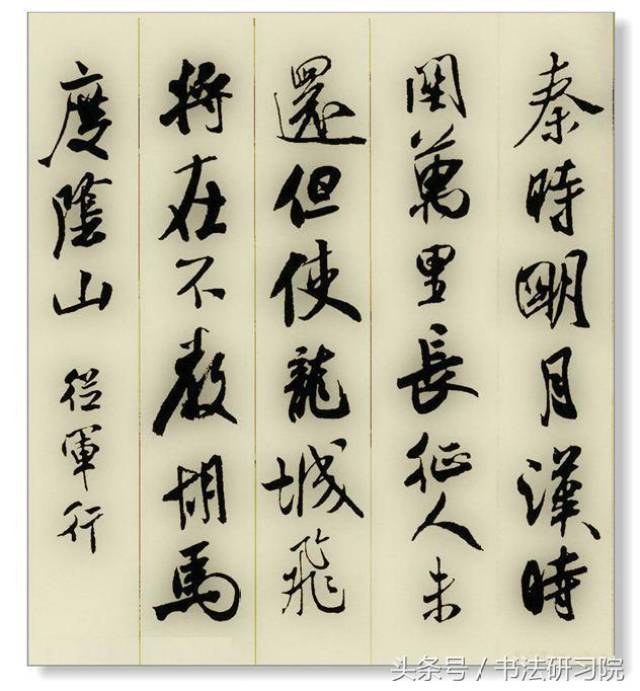 秦時明月漢時
關萬里長征人未
還但使龍城飛
將在不教胡馬
度陰山
從軍行
头条号 / 书法研习院